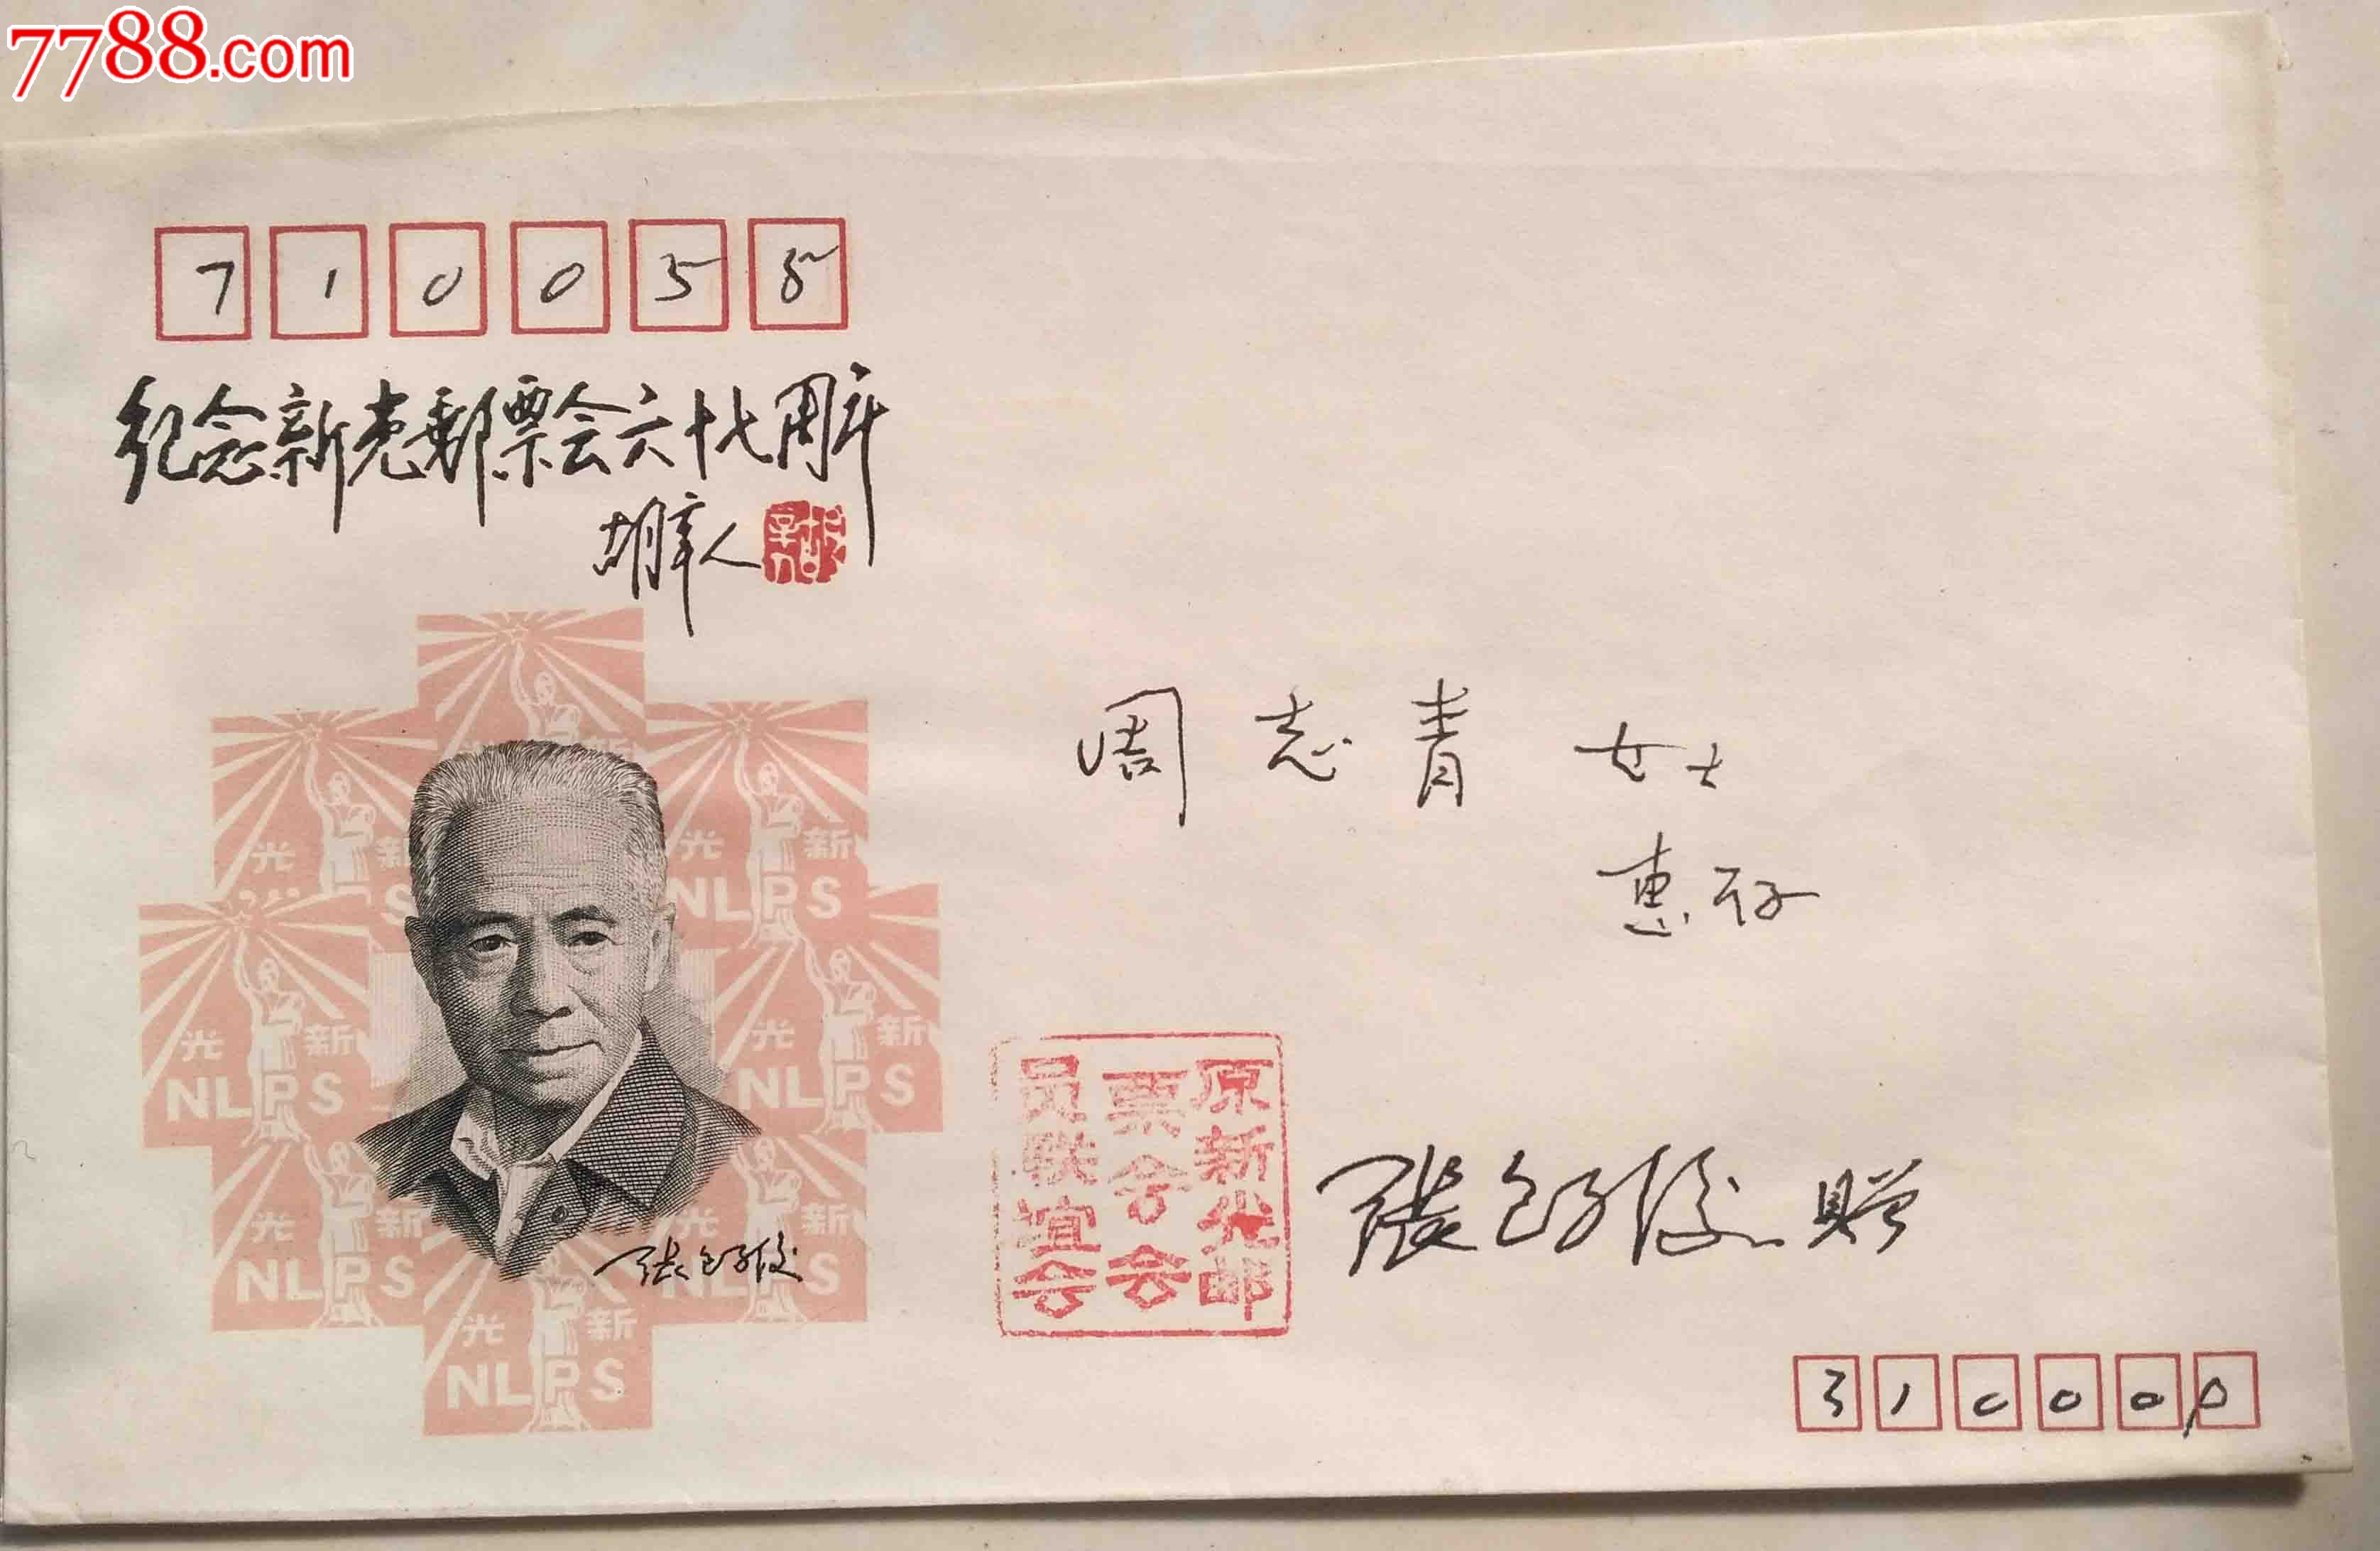 7788.com
710058
纪念新光郵票会六十七周年
胡辛人
周志青 女士
惠存
光 新
NLPS
光 新
NLPS
光 新
NLPS
光 新
NLPS
光 新
NLPS
光 新
NLPS
光 新
NLPS
张包子俊
原新光邮
票会会
员联谊会
張包子俊 赠
310000